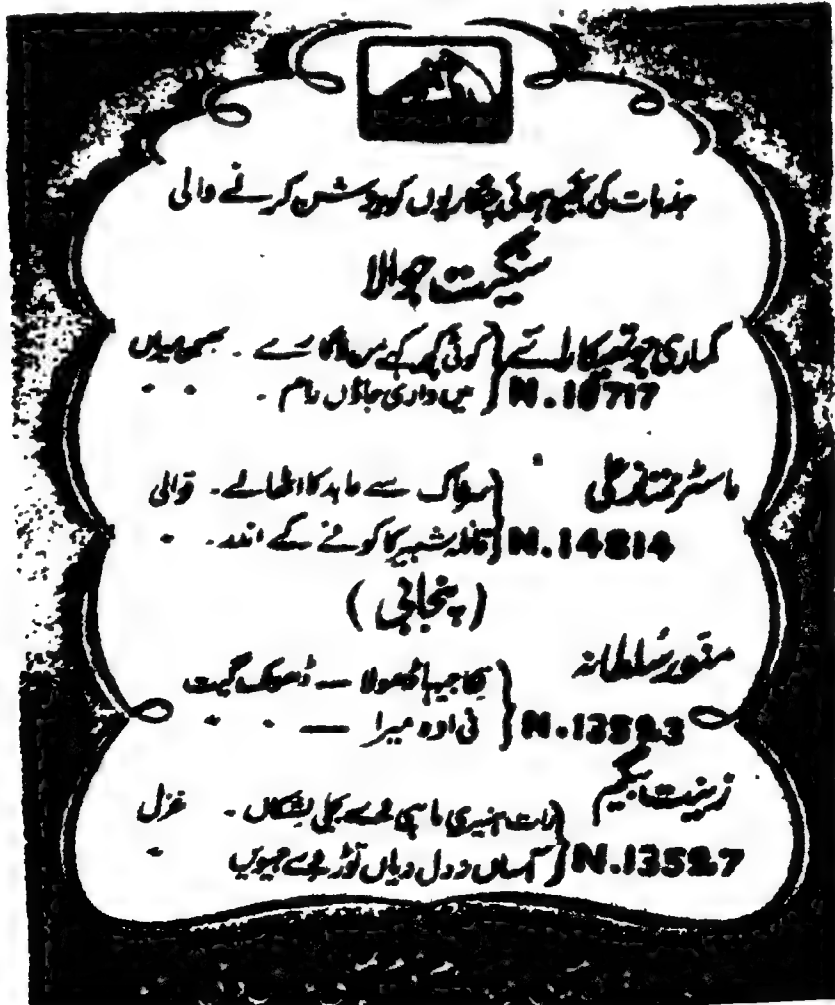 جذبات کی بجھی ہوئی چنگاریوں کو روشن کرنے والی
سنگیت جوالا
کماری جوتھیکا رائے
کوئی کہے من لاگا رے - بھجن میراں
N.16717
میں واری جاؤں رام - " "
ماسٹر ممتاز علی
سے عابد کا اٹھالے - قوالی
N.14814
قافلہ شبیر کا کوفے کے اندر - " "
(پنجابی)
منور سلطانہ
نکا جیہا ڈھولا — ڈھولک گیت
N.13593
نی اوہ میرا — " "
زینت بیگم
رات ہنیری ماہی وے بجلی لشکاں - غزل
N.13587
آساں دو دل دیاں توڑ وے جیویں "